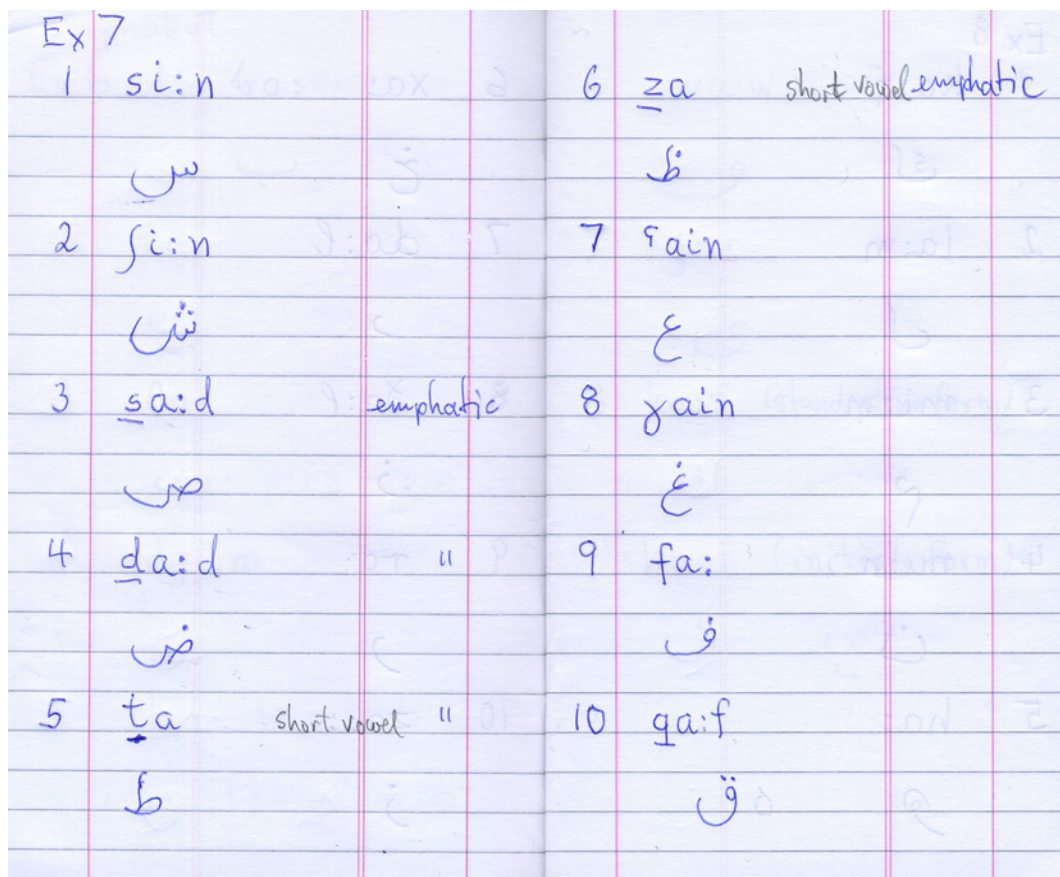 Ex 7
1 si:n
س
2 ʃi:n
ش
3 sa:d emphatic
ص
4 da:d "
ض
5 ta short vowel "
ط
6 za short vowel emphatic
ظ
7 ʕain
ع
8 ɣain
غ
9 fa:
ف
10 qa:f
ق